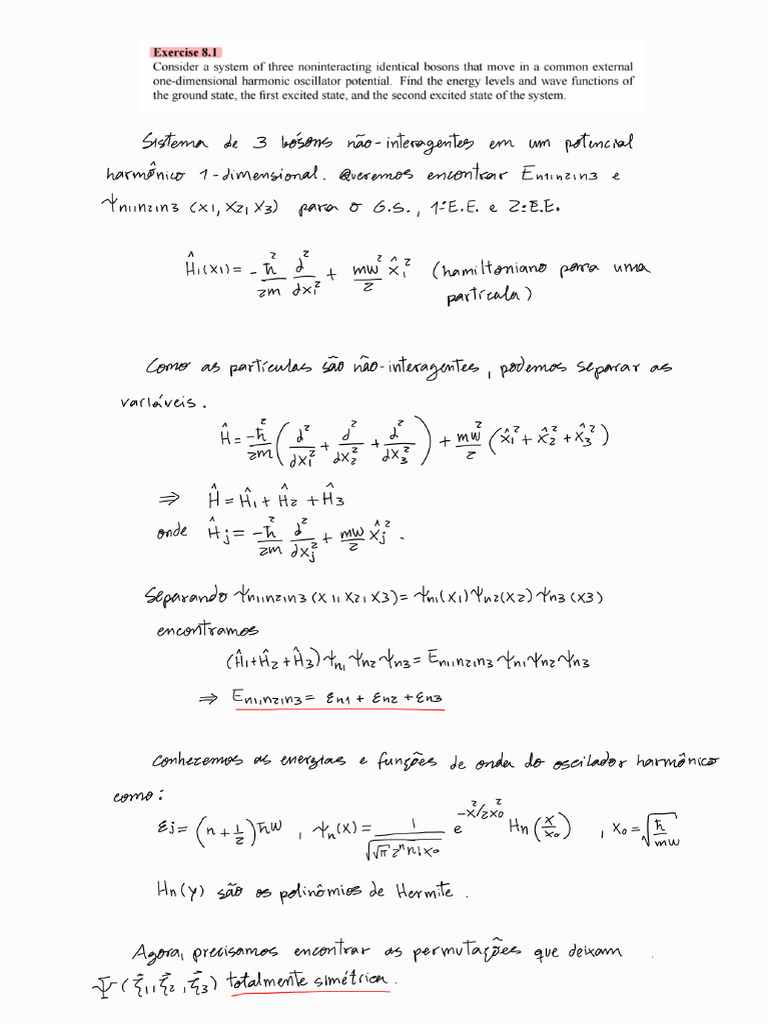 Exercise 8.1
Consider a system of three noninteracting identical bosons that move in a common external
one-dimensional harmonic oscillator potential. Find the energy levels and wave functions of
the ground state, the first excited state, and the second excited state of the system.
Sistema de 3 bósons não-interagentes em um potencial
harmônico 1-dimensional. Queremos encontrar En1,n2,n3 e
Ψn1,n2,n3 (x1, x2, x3) para o G.S., 1º E.E. e 2º E.E.
Ĥ1(x1) = -ħ²/2m d²/dx1² + mw²/2 x̂1² (hamiltoniano para uma
partícula)
Como as partículas são não-interagentes, podemos separar as
variáveis.
Ĥ = -ħ²/2m (d²/dx1² + d²/dx2² + d²/dx3²) + mw²/2 (x̂1² + x̂2² + x̂3²)
⇒ Ĥ = Ĥ1 + Ĥ2 + Ĥ3
onde Ĥj = -ħ²/2m d²/dxj² + mw/2 x̂j².
Separando Ψn1,n2,n3 (x1, x2, x3) = Ψn1(x1) Ψn2(x2) Ψn3(x3)
encontramos
(Ĥ1+Ĥ2+Ĥ3) Ψn1 Ψn2 Ψn3 = En1,n2,n3 Ψn1 Ψn2 Ψn3
⇒ En1,n2,n3 = εn1 + εn2 + εn3
Conhecemos as energias e funções de onda do oscilador harmônico
como:
εj = (n + 1/2) ħw , Ψn(x) = 1/√(√π 2ⁿ n! x0) e^(-x²/2x0²) Hn(x/x0) , x0 = √(ħ/mw)
Hn(y) são os polinômios de Hermite.
Agora, precisamos encontrar as permutações que deixam
Ψ(ξ⃗1, ξ⃗2, ξ⃗3) totalmente simétrica.